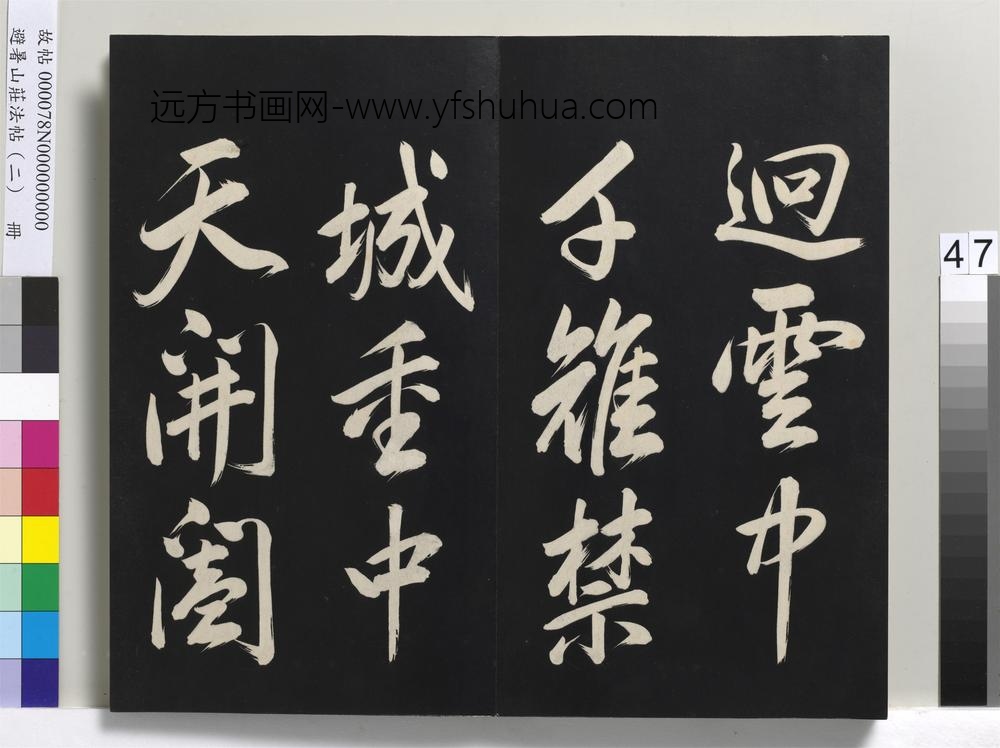 故帖 000078N000000000
避暑山莊法帖（二） 冊
远方书画网-www.yfshuhua.com
47
迥雲中
千雉禁
城重中
天開閶